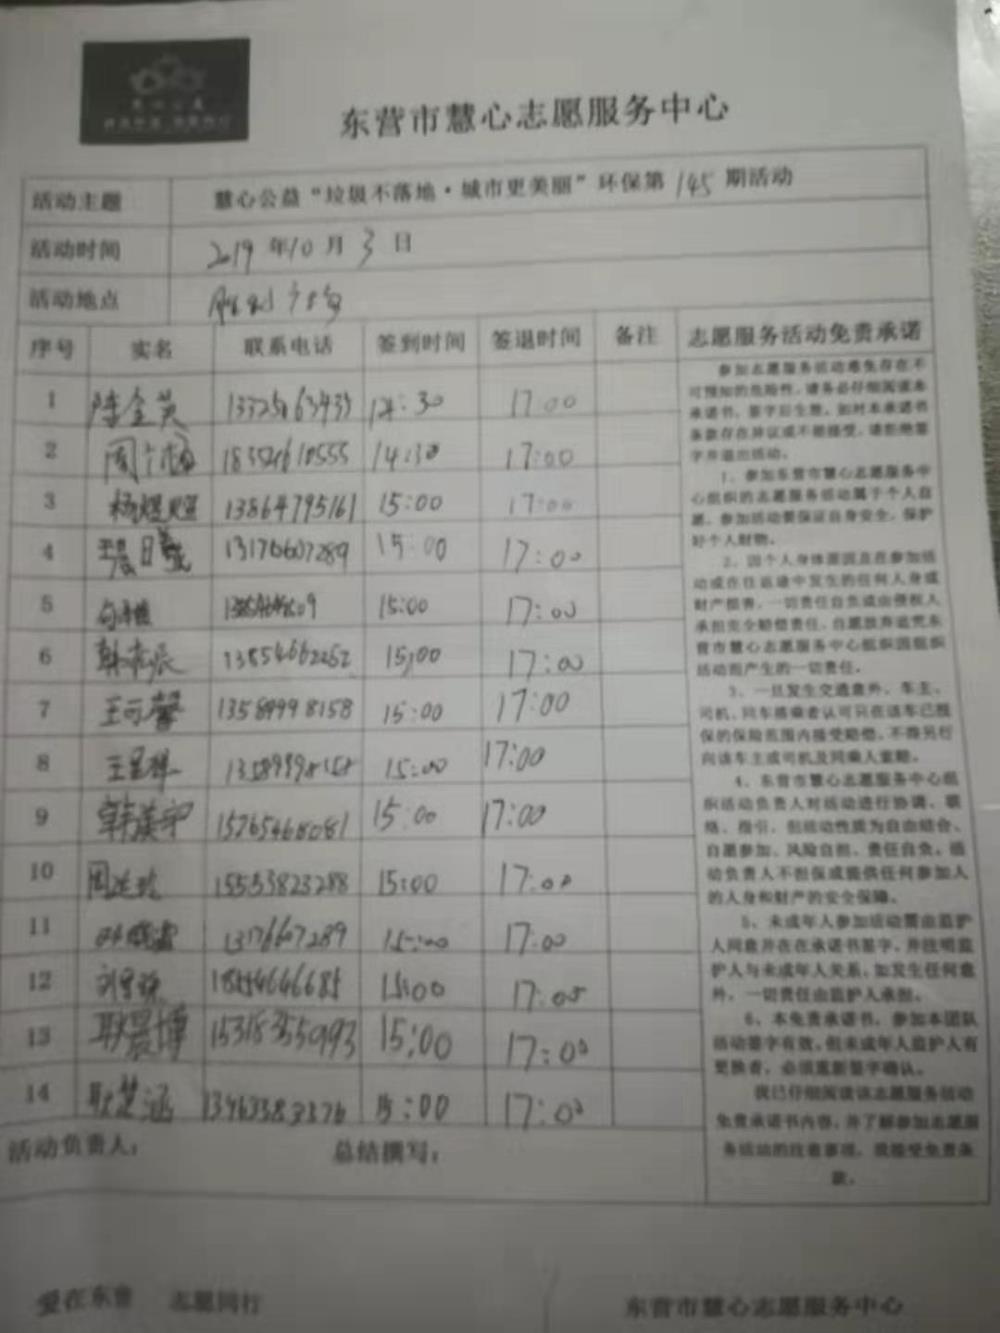 东营市慧心志愿服务中心
活动主题 慧心公益“垃圾不落地·城市更美丽”环保第145期活动
活动时间 2019年10月3日
活动地点 胜利广场
序号 实名 联系电话 签到时间 签退时间 备注 志愿服务活动免责承诺
1 陈金英 14:30 17:00
2 14:30 17:00
3 杨煜煜 13864795161 15:00 17:00
4 13176607289 15:00 17:00
5 15:00 17:00
6 15:00 17:00
7 王可馨 13589998158 15:00 17:00
8 王星祥 13589998158 15:00 17:00
9 15765468081 15:00 17:00
10 15553823288 15:00 17:00
11 13176607289 15:00 17:00
12 18554646685 15:00 17:05
13 耿晨博 153183550993 15:00 17:00
14 耿楚涵 15:00 17:00
参加志愿服务活动难免存在不
可预知的危险性，请务必仔细阅读本
承诺书，签字后生效。如对本承诺书
条款存在异议或不能接受，请拒绝签
字并退出活动。
1、参加东营市慧心志愿服务中
心组织的志愿服务活动属于个人自
愿，参加活动要保证自身安全，保护
好个人财物。
2、因个人身体原因及在参加活
动或在往返途中发生的任何人身或
财产损害，一切责任自负或由侵权人
承担完全赔偿责任，自愿放弃追究东
营市慧心志愿服务中心组织因组织
活动而产生的一切责任。
3、一旦发生交通意外，车主、
司机、同车搭乘者认可只在该车已投
保的保险范围内接受赔偿，不得另行
向该车主或司机及同乘人索赔。
4、东营市慧心志愿服务中心组
织活动负责人对活动进行协调、联
络、指引，但活动性质为自由结合、
自愿参加、风险自担、责任自负。活
动负责人不担保或提供任何参加人
的人身和财产的安全保障。
5、未成年人参加活动需由监护
人同意并在在承诺书签字，并注明监
护人与未成年人关系。如发生任何意
外，一切责任由监护人承担。
6、本免责承诺书，参加本团队
活动签字有效，但未成年人监护人有
更换者，必须重新签字确认。
我已仔细阅读该志愿服务活动
免责承诺书内容，并了解参加志愿服
务活动的注意事项，我接受免责条
款。
活动负责人： 总结撰写：
爱在东营 志愿同行 东营市慧心志愿服务中心